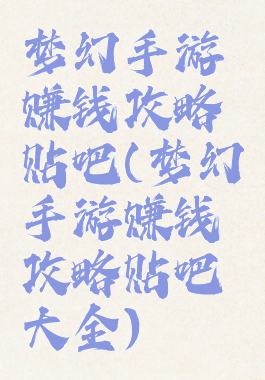 梦幻手游
赚钱攻略
贴吧(梦幻
手游赚钱
攻略贴吧
大全)